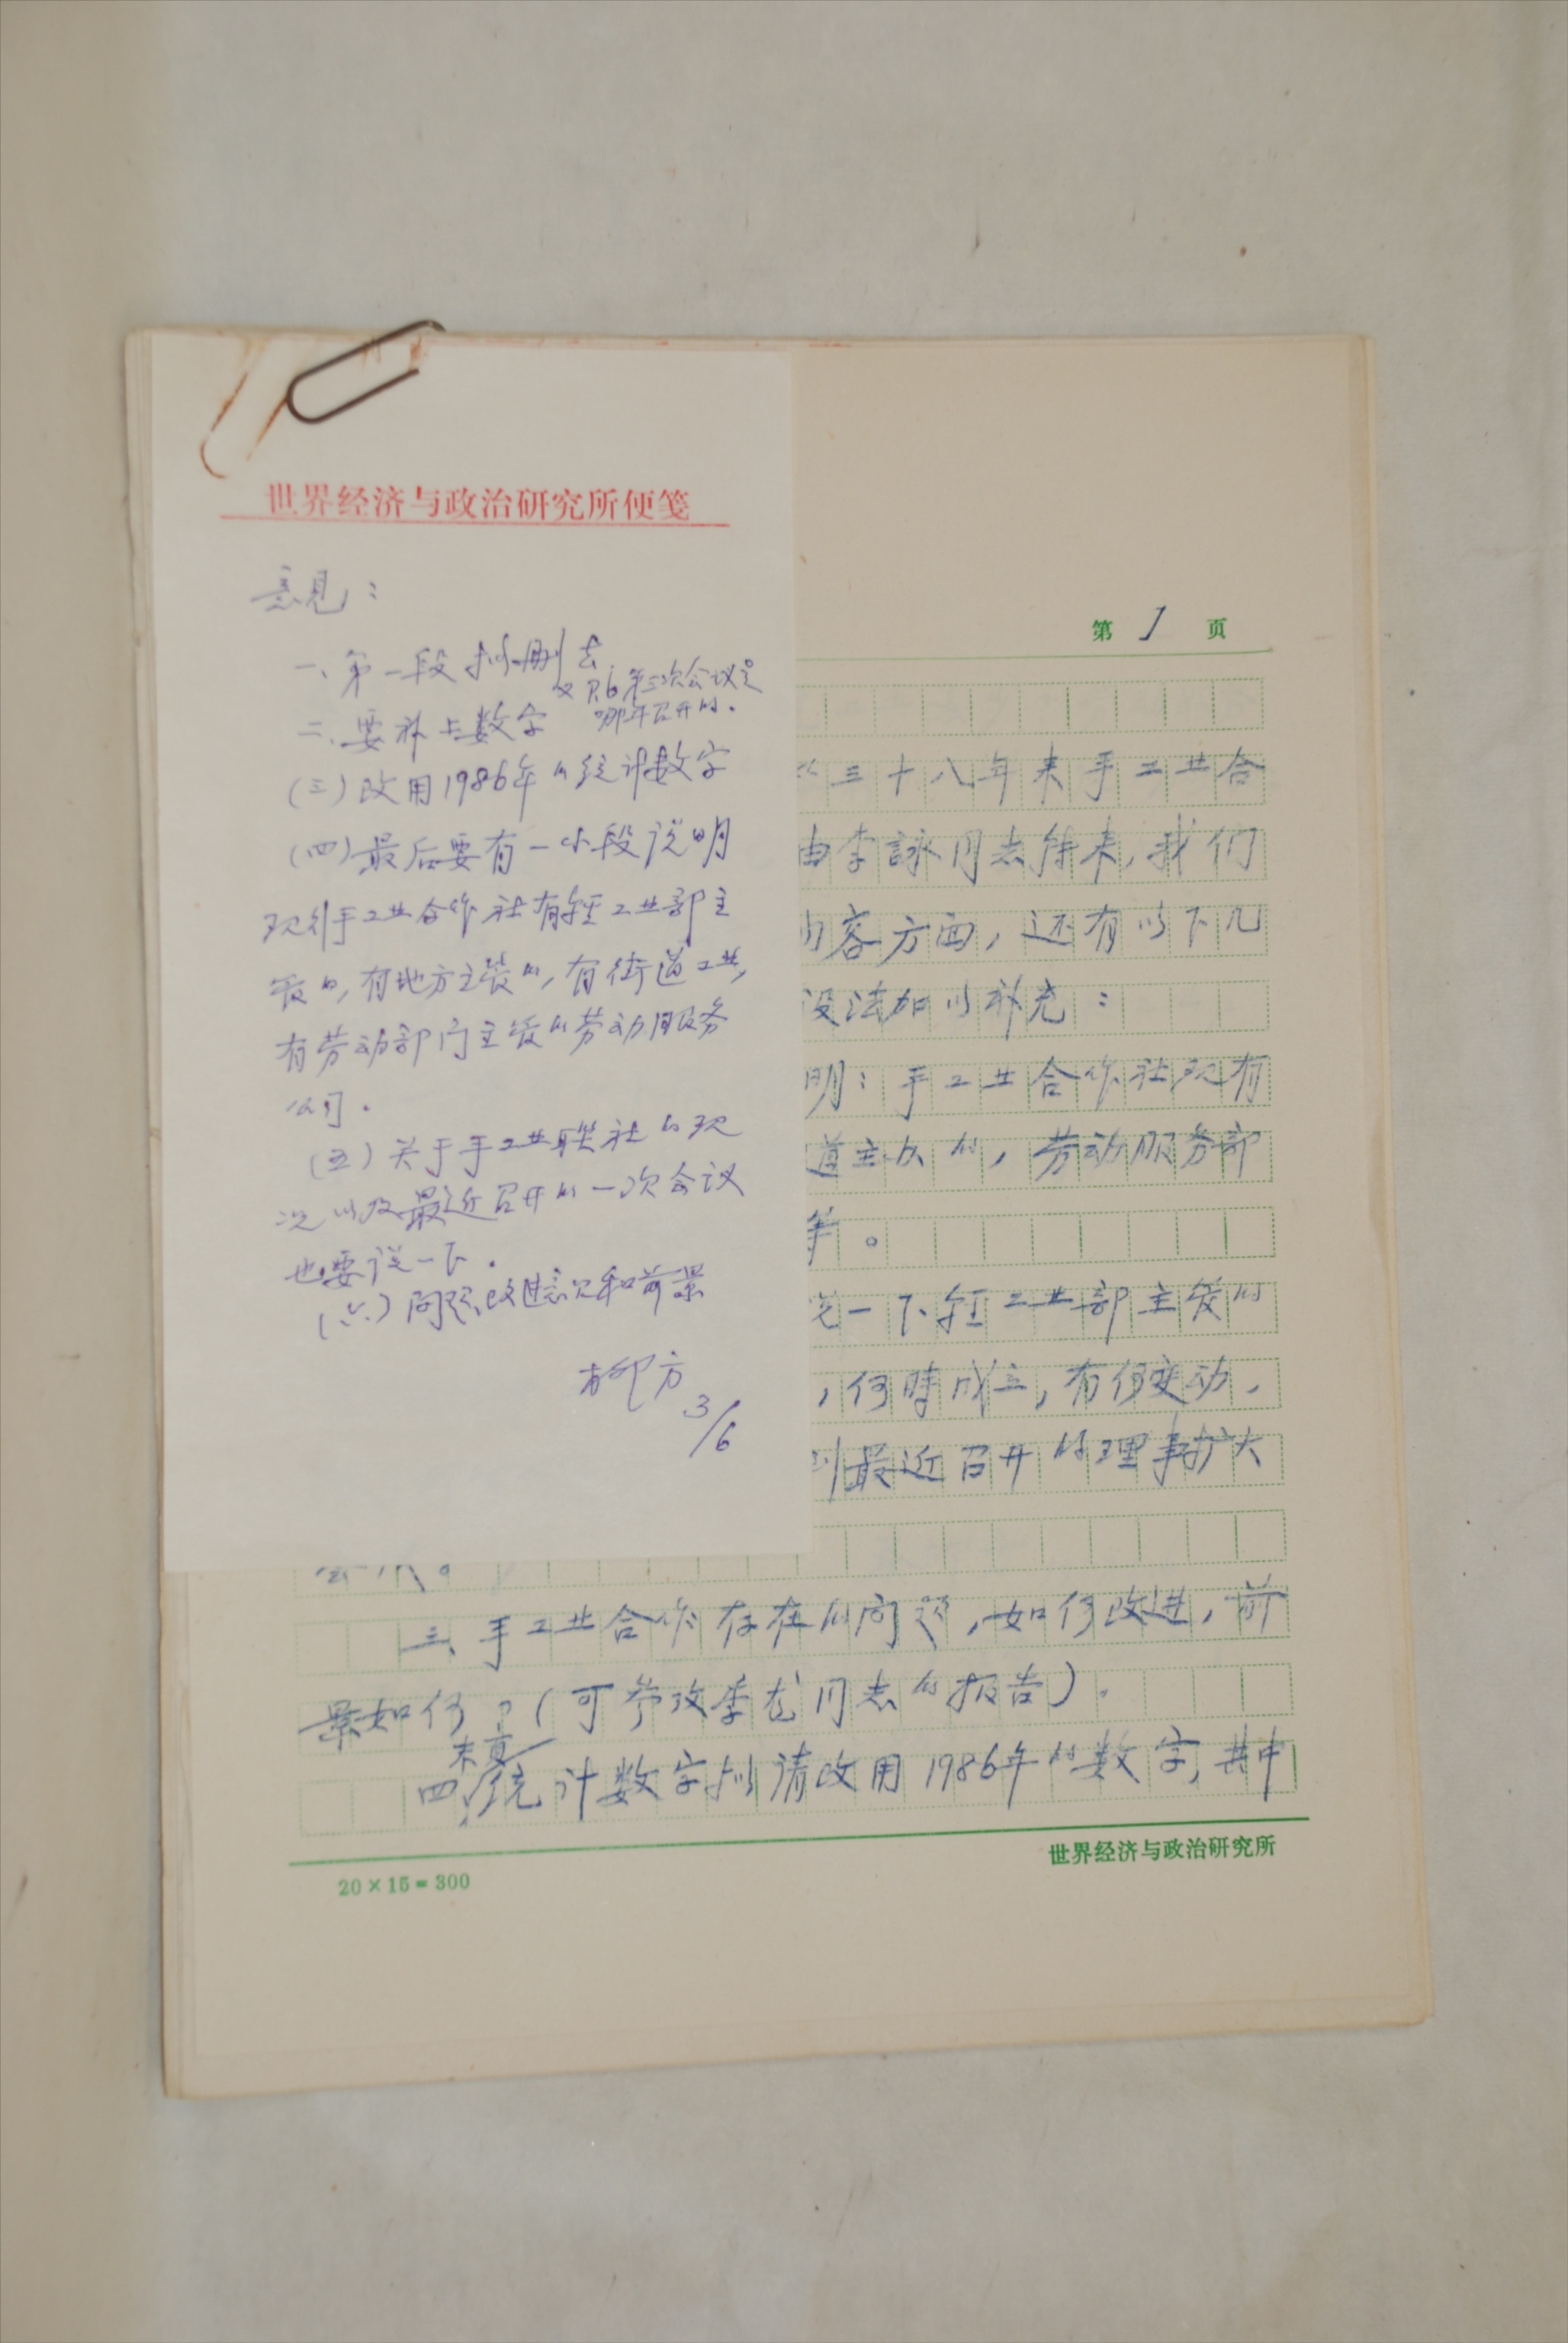 世界经济与政治研究所便笺
意见：
一、第一段拟删去
二、要补上数字
又 P.6 第三次会议是
哪年召开的.
(三)改用1986年的统计数字
(四)最后要有一小段说明
现行手工业合作社有轻工业部主
管的,有地方主管的,有街道工业,
有劳动部门主管的劳动服务
公司.
(五)关于手工业联社的现
况以及最近召开的一次会议
也要说一下.
(六)问题、改进意见和前景
柳方
3/6
第 1 页
三十八年来手工业合
由李詠同志转来,我们
内容方面,还有以下几
设法加以补充：
明：手工业合作社现有
道主办的,劳动服务部
等。
说一下轻工业部主管的
,何時成立,有何变动.
到最近召开的理事扩大
三、手工业合作存在的问题,如何改进,前
景如何?(可参攷季龙同志的报告).
四、统计数字拟请改用1986年的数字,其中
世界经济与政治研究所
20×15=300